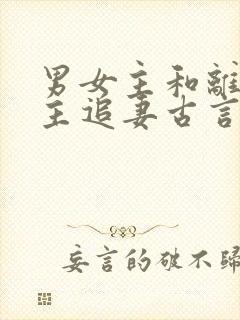 男女主和離
主追妻古言
妄言的破不歸